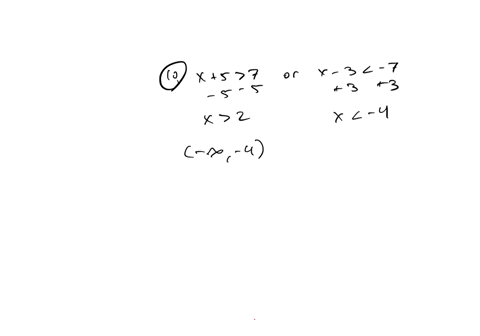 10, x+5>7 or x-3<-7
-5 -5 +3 +3
x>2 x<-4
(-∞,-4)